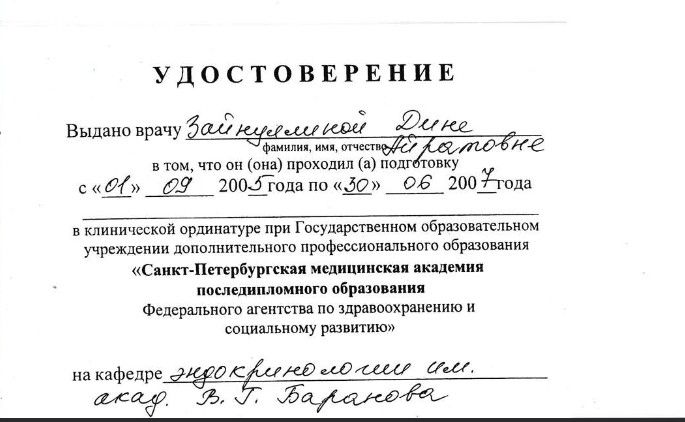 УДОСТОВЕРЕНИЕ
Выдано врачу Зайнуллиной Дине
фамилия, имя, отчество Айратовне
в том, что он (она) проходил (а) подготовку
с «01» 09 2005 года по «30» 06 2007 года
в клинической ординатуре при Государственном образовательном
учреждении дополнительного профессионального образования
«Санкт-Петербургская медицинская академия
последипломного образования
Федерального агентства по здравоохранению и
социальному развитию»
на кафедре эндокринологии им.
акад. В. Г. Баранова